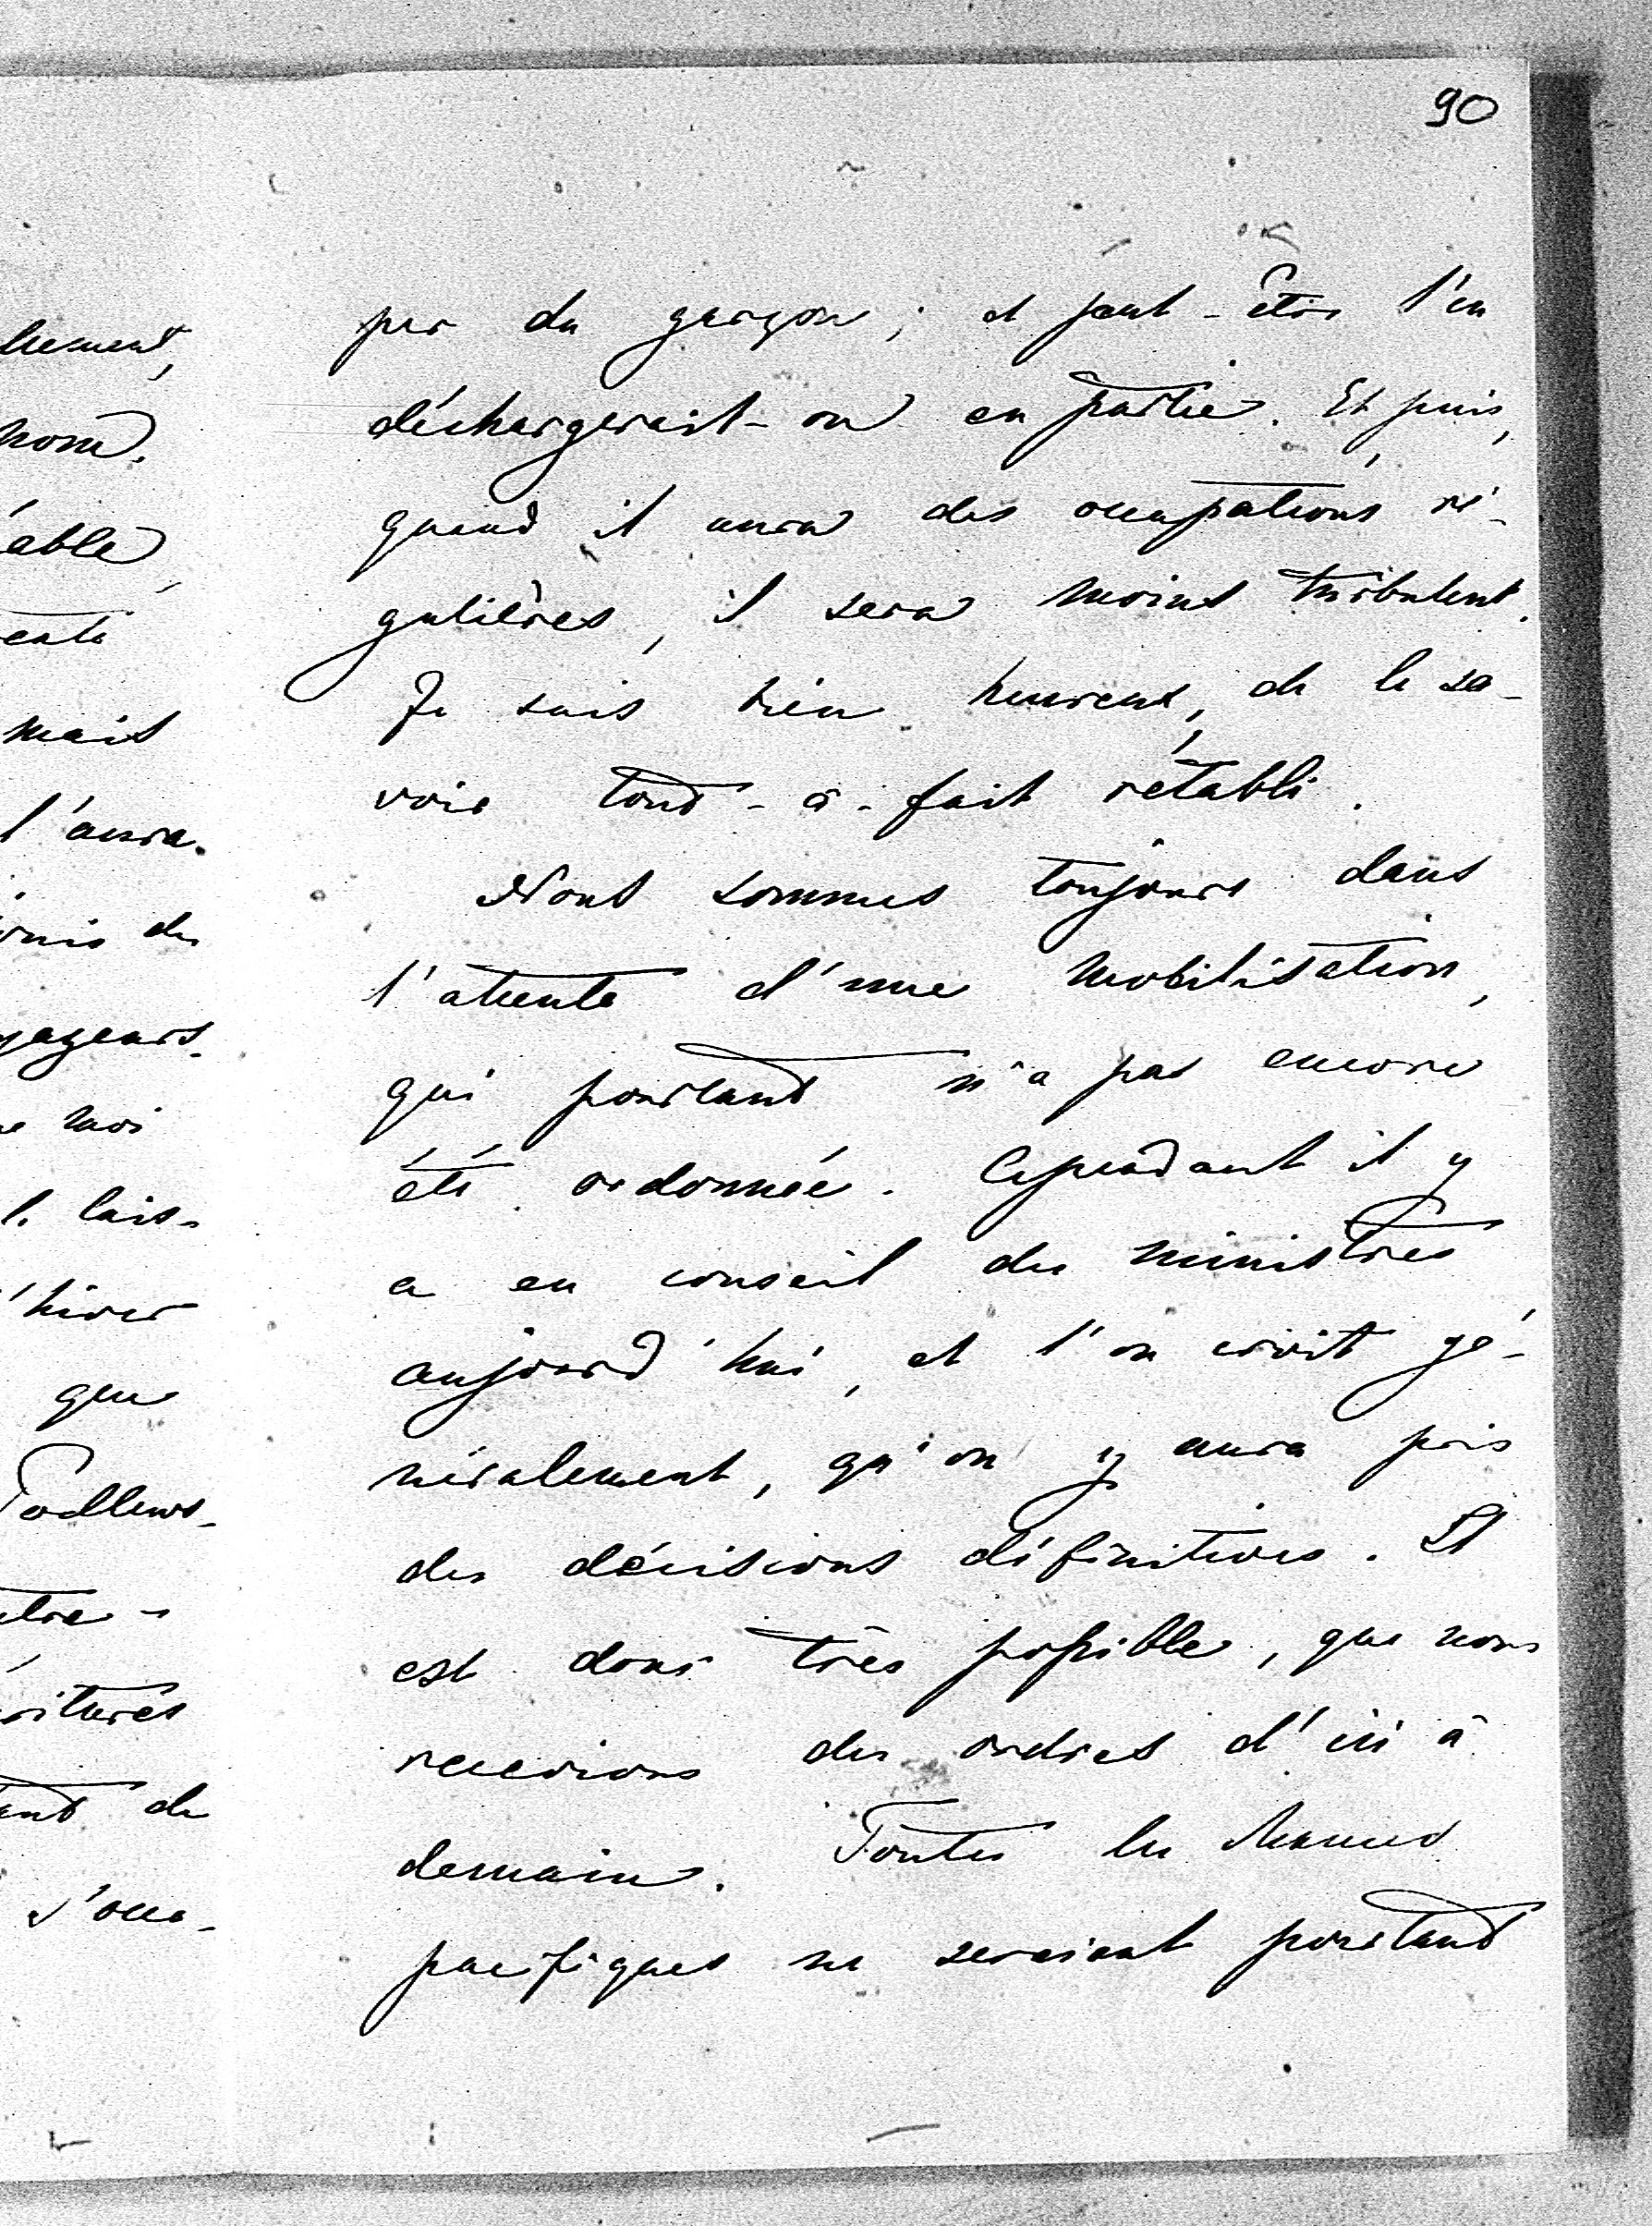 90
per du garçon; et peut-être l'en
déchargerait-on en partie. Et puis,
quand il aura des occupations ré-
gulières, il sera moins turbulent.
Je suis bien heureux, de le sa-
voir tout-à-fait rétabli.
Nous sommes toujours dans
l'attente d'une mobilisation,
qui pourtant n'a pas encore
été ordonnée. Cependant il y
a eu conseil des ministres
aujourd'hui, et l'on croit gé-
néralement, qu'on y aura pris
des décisions définitives. Il
est donc très possible, que nous
recevions des ordres d'ici à
demain. Toutes les
pacifiques ne seraient pourtant
nom.
able
mais
l'aura.
moi
l. lais-
'hiver
que
de
s'occu-